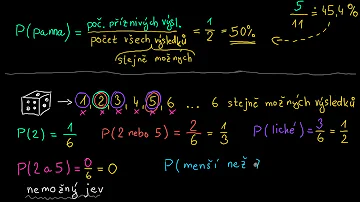 P(panna) = poč. příznivých výsl. / počet všech výsledků = 1/2 = 50%
stejně možných
5/11 ≐ 45,4%
→ 1, 2, 3, 4, 5, 6 ... 6 stejně možných výsledků
P(2) = 1/6 P(2 nebo 5) = 2/6 = 1/3 P(liché) = 3/6 = 1/2
P(2 a 5) = 0/6 = 0 P(menší než
nemožný jev